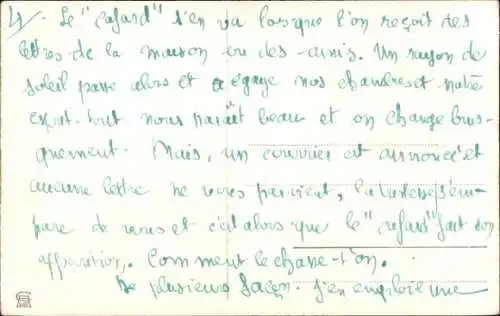 4/. Le "cafard" s'en va lorsque l'on reçoit des
lettres de la maison ou des amis. Un rayon de
soleil passe alors et égaye nos chambres et notre
esprit. tout nous paraît beau et on change brus-
quement. Mais, un courrier est annoncé et
aucune lettre ne vous parvient, la tristesse s'em-
pare de vous et c'est alors que le "cafard" fait son
apparition. Comment le chasse-t'on.
De plusieurs façon. J'en emploie une